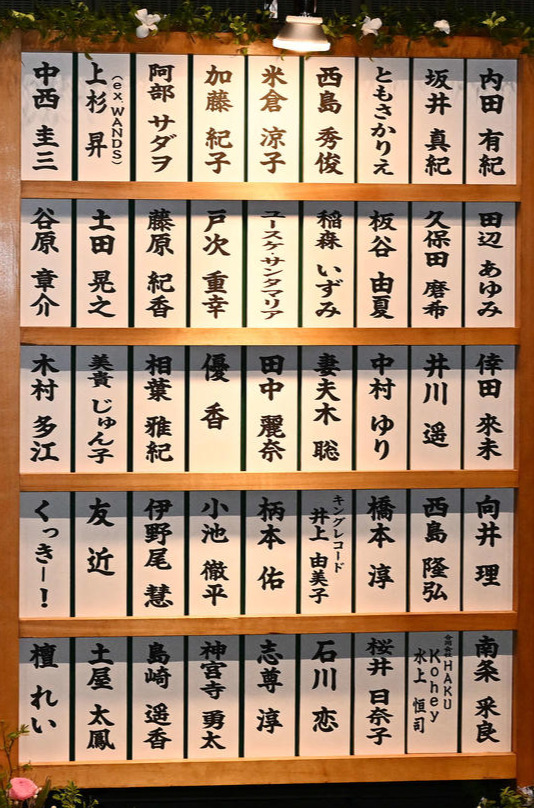 内田 有紀
坂井 真紀
ともさかりえ
西島 秀俊
米倉 涼子
加藤 紀子
阿部 サダヲ
(ex.WANDS)
上杉 昇
中西 圭三
田辺 あゆみ
久保田 磨希
板谷 由夏
稲森 いずみ
ユースケ・サンタマリア
戸次 重幸
藤原 紀香
土田 晃之
谷原 章介
倖田 來未
井川 遥
中村 ゆり
妻夫木 聡
田中 麗奈
優 香
相葉 雅紀
美貴 じゅん子
木村 多江
向井 理
西島 隆弘
橋本 淳
キングレコード
井上 由美子
柄本 佑
小池 徹平
伊野尾 慧
友 近
くっきー!
南条 采良
合同会社HAKU
Kohey
水上 恒司
桜井 日奈子
石川 恋
志尊 淳
神宮寺 勇太
島崎 遥香
土屋 太鳳
檀 れい